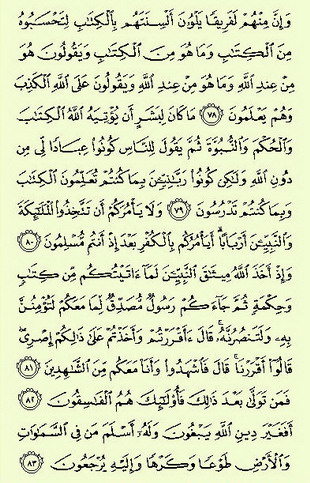 وَإِنَّ مِنْهُمْ لَفَرِيقًا يَلْوُۥنَ أَلْسِنَتَهُم بِٱلْكِتَٰبِ لِتَحْسَبُوهُ
مِنَ ٱلْكِتَٰبِ وَمَا هُوَ مِنَ ٱلْكِتَٰبِ وَيَقُولُونَ هُوَ
مِنْ عِندِ ٱللَّهِ وَمَا هُوَ مِنْ عِندِ ٱللَّهِ وَيَقُولُونَ عَلَى ٱللَّهِ ٱلْكَذِبَ
وَهُمْ يَعْلَمُونَ ٧٨ مَا كَانَ لِبَشَرٍ أَن يُؤْتِيَهُ ٱللَّهُ ٱلْكِتَٰبَ
وَٱلْحُكْمَ وَٱلنُّبُوَّةَ ثُمَّ يَقُولَ لِلنَّاسِ كُونُوا۟ عِبَادًا لِّى مِن
دُونِ ٱللَّهِ وَلَٰكِن كُونُوا۟ رَبَّٰنِيِّۦنَ بِمَا كُنتُمْ تُعَلِّمُونَ ٱلْكِتَٰبَ
وَبِمَا كُنتُمْ تَدْرُسُونَ ٧٩ وَلَا يَأْمُرَكُمْ أَن تَتَّخِذُوا۟ ٱلْمَلَٰٓئِكَةَ
وَٱلنَّبِيِّۦنَ أَرْبَابًا أَيَأْمُرُكُم بِٱلْكُفْرِ بَعْدَ إِذْ أَنتُم مُّسْلِمُونَ ٨٠
وَإِذْ أَخَذَ ٱللَّهُ مِيثَٰقَ ٱلنَّبِيِّۦنَ لَمَآ ءَاتَيْتُكُم مِّن كِتَٰبٍ
وَحِكْمَةٍ ثُمَّ جَآءَكُمْ رَسُولٌ مُّصَدِّقٌ لِّمَا مَعَكُمْ لَتُؤْمِنُنَّ
بِهِۦ وَلَتَنصُرُنَّهُۥ قَالَ ءَأَقْرَرْتُمْ وَأَخَذْتُمْ عَلَىٰ ذَٰلِكُمْ إِصْرِى
قَالُوٓا۟ أَقْرَرْنَا قَالَ فَٱشْهَدُوا۟ وَأَنَا۠ مَعَكُم مِّنَ ٱلشَّٰهِدِينَ ٨١
فَمَن تَوَلَّىٰ بَعْدَ ذَٰلِكَ فَأُو۟لَٰٓئِكَ هُمُ ٱلْفَٰسِقُونَ ٨٢
أَفَغَيْرَ دِينِ ٱللَّهِ يَبْغُونَ وَلَهُۥٓ أَسْلَمَ مَن فِى ٱلسَّمَٰوَٰتِ
وَٱلْأَرْضِ طَوْعًا وَكَرْهًا وَإِلَيْهِ يُرْجَعُونَ ٨٣